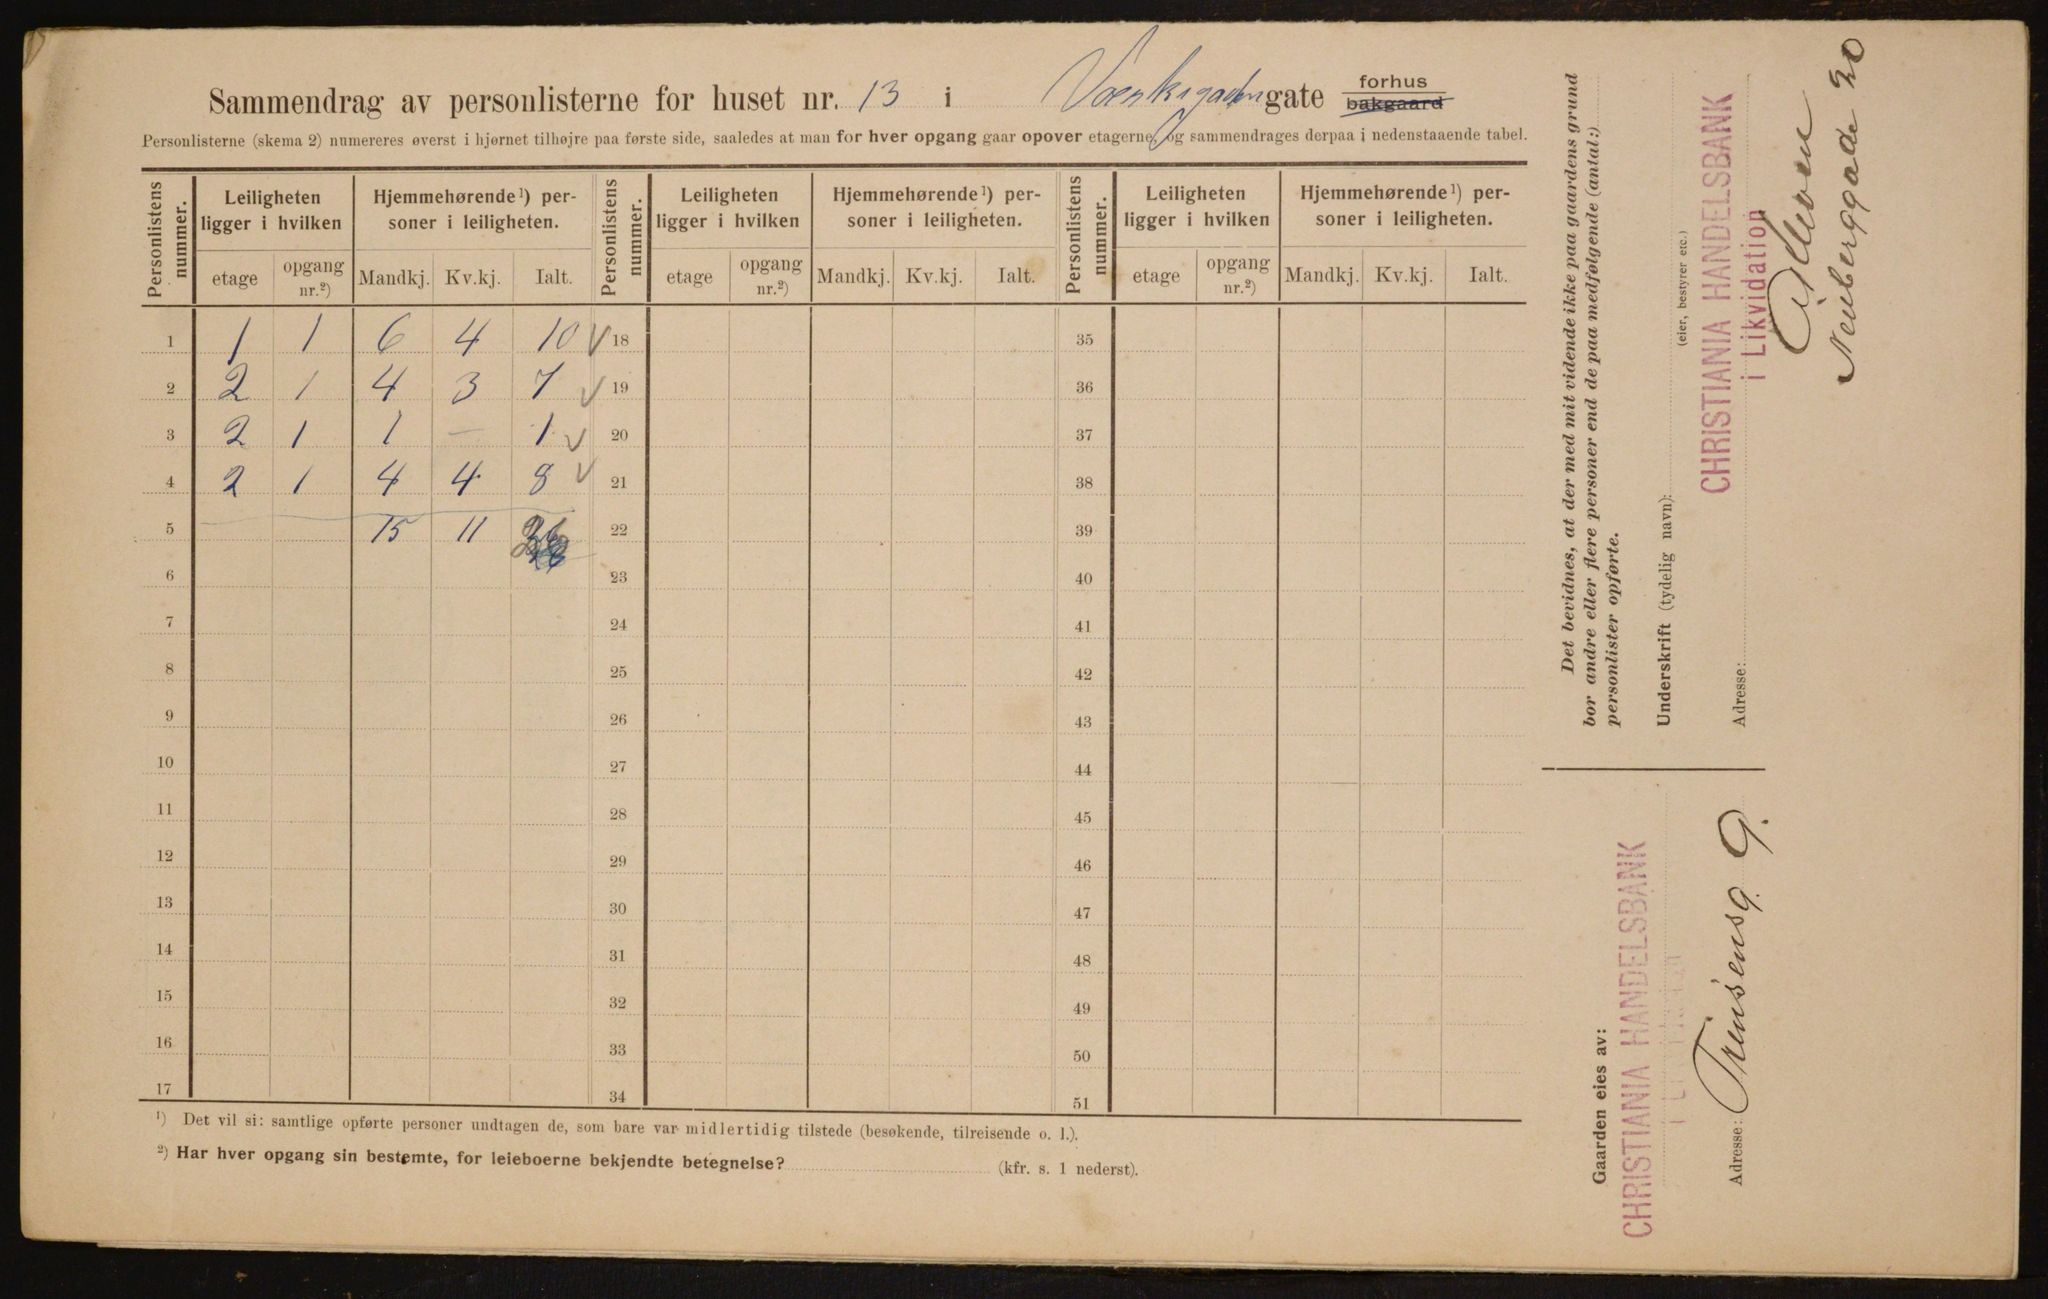 Sammendrag av personlisterne for huset nr. 13 i gate forhus bakgaard
Personlisterne (skema 2) numereres øverst i hjørnet tilhøjre paa første side, saaledes at man for hver opgang gaar opover etagerne, og sammendrages derpaa i nedenstaaende tabel.
Personlistens nummer. Leiligheten ligger i hvilken Hjemmehørende¹) personer i leiligheten. Personlistens nummer. Leiligheten ligger i hvilken Hjemmehørende¹) personer i leiligheten. Personlistens nummer. Leiligheten ligger i hvilken Hjemmehørende¹) personer i leiligheten.
etage opgang nr.²) Mandkj. Kv.kj. Ialt. etage opgang nr.²) Mandkj. Kv.kj. Ialt. etage opgang nr.²) Mandkj. Kv.kj. Ialt.
1 1 1 6 4 10 18 35
2 2 1 4 3 7 19 36
3 2 1 1 — 1 20 37
4 2 1 4 4 8 21 38
5 15 11 26 22 39
6 23 40
7 24 41
8 25 42
9 26 43
10 27 44
11 28 45
12 29 46
13 30 47
14 31 48
15 32 49
16 33 50
17 34 51
¹) Det vil si: samtlige opførte personer undtagen de, som bare var midlertidig tilstede (besøkende, tilreisende o. l.).
²) Har hver opgang sin bestemte, for leieboerne bekjendte betegnelse? (kfr. s. 1 nederst).
Det bevidnes, at der med mit vidende ikke paa gaardens grund
bor andre eller flere personer end de paa medfølgende (antal:)
personlister opførte.
Underskrift (tydelig navn):
(eier, bestyrer etc.)
CHRISTIANIA HANDELSBANK
i Likvidation
Adresse:
Neuberggade 20
Gaarden eies av:
CHRISTIANIA HANDELSBANK
Adresse: 9.